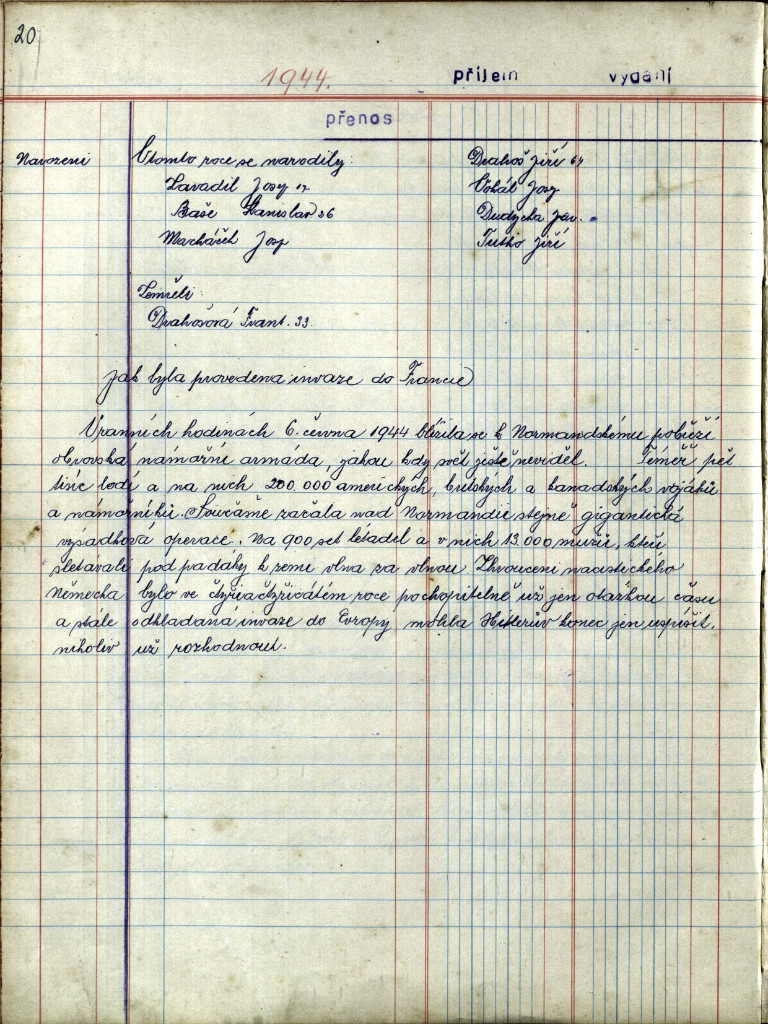 20
1944. příjem vydání
přenos
Narozeni V tomto roce se narodily: Drahoš Jiří 64
Zavadil Josef 17 Vokál Josef
Baše Stanislav 36 Dudycha Jar.
Macháček Josef Jiří
Zemřeli:
Drahošová Frant. 33.
Jak byla provedena invaze do Francie
V ranních hodinách 6. června 1944 blížila se k Normandskému pobřeží
obrovská námořní armáda, jakou kdy svět ještě neviděl. Téměř pět
tisíc lodí a na nich 200.000 amerických, britských a kanadských vojáků
a námořníků. Současně začala nad Normandií stejně gigantická
výsadková operace. Na 900 set letadel a v nich 13.000 mužů, kteří
slétávali pod padáky k zemi vlna za vlnou Zhroucení nacistického
Německa bylo ve čtyřiačtyřicátém roce pochopitelně už jen otázkou času
a stále odkladaná invaze do Evropy mohla Hitlerův konec jen uspíšit,
nikoliv už rozhodnout.